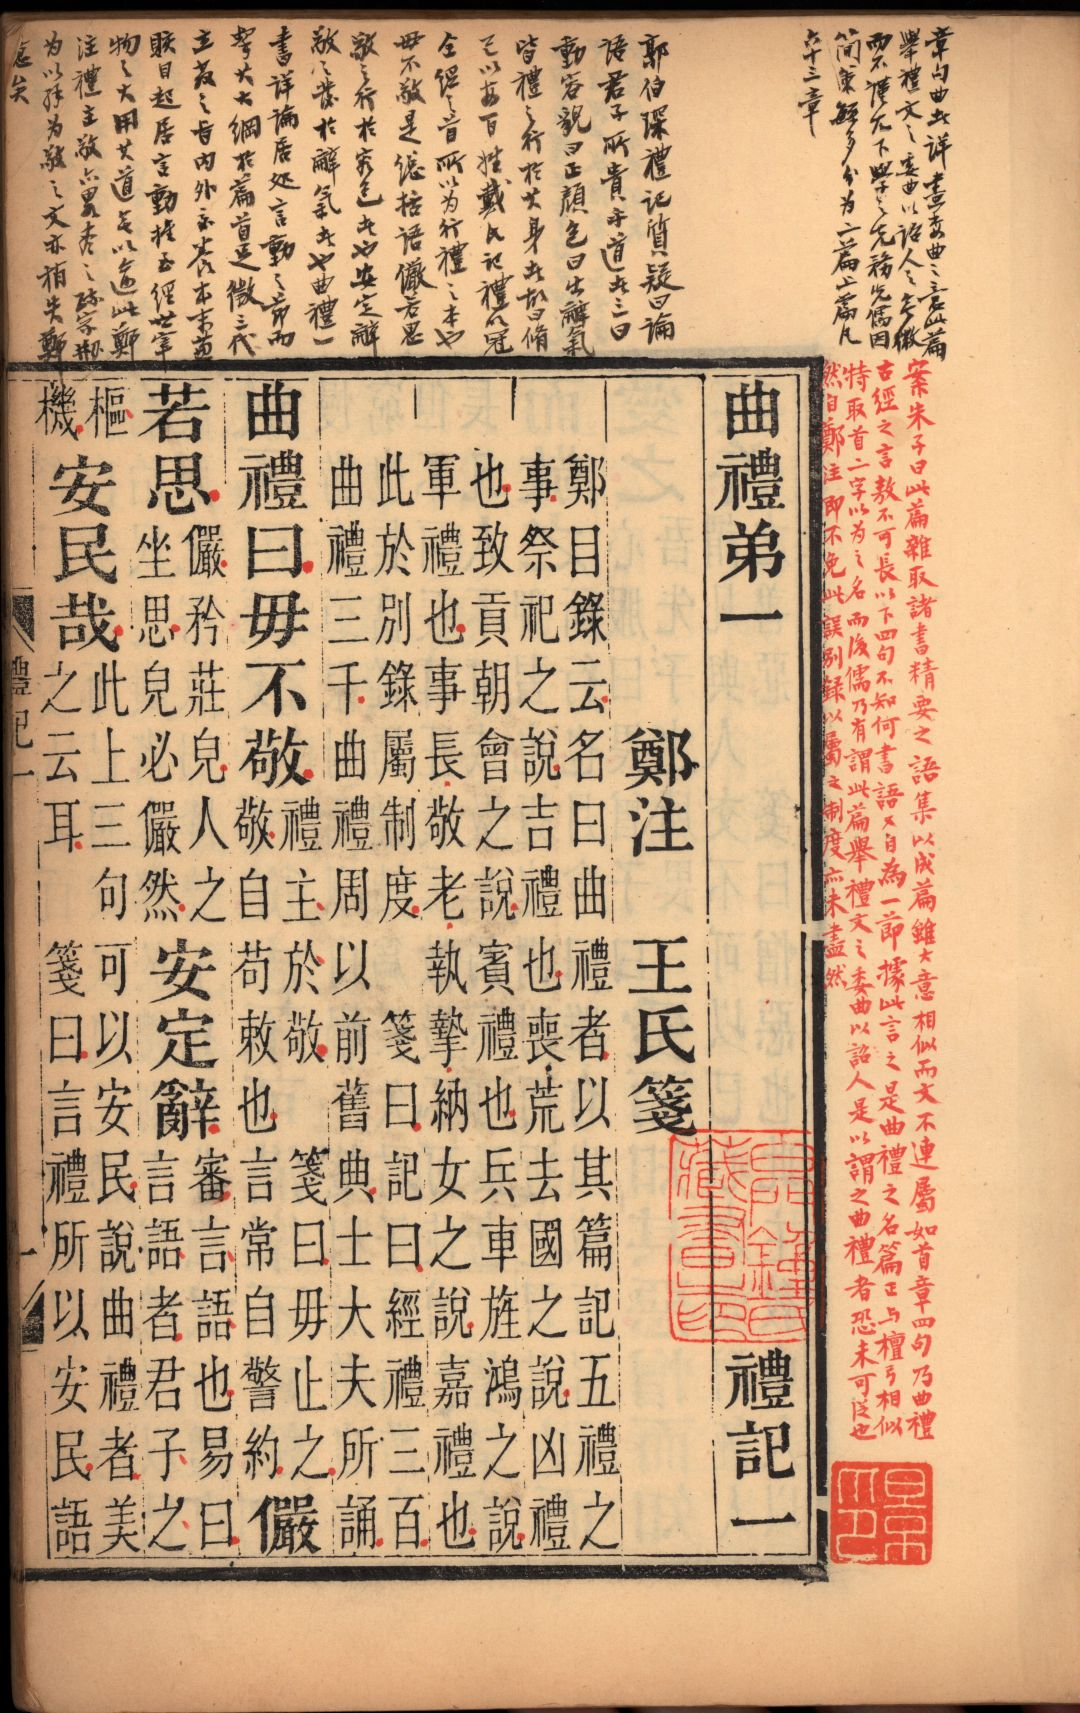 章句曲者詳盡委曲之意此篇
舉禮文之委曲以詔人之微
而不謹尤下學之先務先儒因
簡策繁多分為二篇上篇凡
六十三章
郭伯琛禮記質疑曰論
語君子所貴乎道者三曰
動容貌曰正顏色曰出辭氣
皆禮之行於其身者故曰脩
己以安百姓戴氏記禮以冠
全經之首所以為行禮之本也
毋不敬是總括語儼若思
敬之行於容色者也安定辭
敬之發於辭氣者也曲禮一
書詳論居処言動之節而
挈其大綱於篇首足徵三代
立教之旨內外交養本末兼
賅自起居言動推至經世宰
物之大用其道無以逾此鄭
注禮主敬亦畧之疏家
為以釋為敬之文亦稍失鄭
意矣
案朱子曰此篇雜取諸書精要之語集以成篇雖大意相似而文不連屬如首章四句乃曲禮
古經之言敖不可長以下四句不知何書語又自為一節據此言之是曲禮之名篇正与檀弓相似
特取首二字以為之名而後儒乃有謂此篇舉禮文之委曲以詔人是以謂之曲禮者恐未可从也
然自鄭注即不免此誤別録以屬之制度亦未盡然
曲禮弟一 禮記一
鄭注 王氏箋
鄭目錄云名曰曲禮者以其篇記五禮之
事祭祀之說吉禮也喪荒去國之說凶禮
也致貢朝會之說賓禮也兵車旌鴻之說
軍禮也事長敬老執摯納女之說嘉禮也
此於別錄屬制度 箋曰記曰經禮三百
曲禮三千曲禮周以前舊典士大夫所誦
曲禮曰毋不敬
禮主於敬 箋曰毋止之
敬自苟敕也言常自警約
儼
若思
儼矜莊皃人之
坐思皃必儼然
安定辭
審言語也易曰
言語者君子之
樞
機
安民哉
此上三句可以安民說曲禮者美
之云耳 箋曰言禮所以安民語
禮記一
一